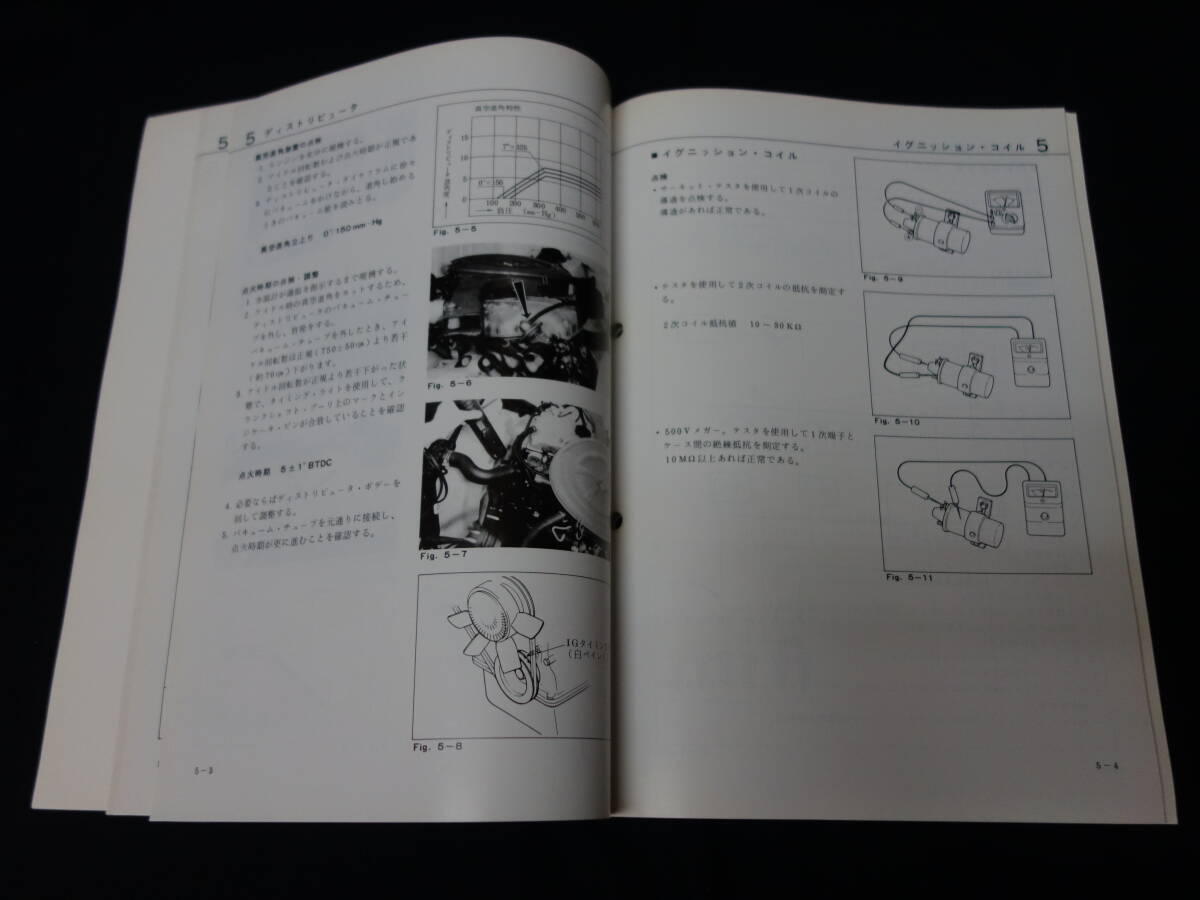 5
5 ディストリビュータ
真空進角装置の点検
1. エンジンを充分に暖機する。
2. アイドル回転数および点火時期が正規であ
ることを確認する。
3. ディストリビュータ・ダイヤフラムに徐々
にバキュームをかけながら、進角し始める
ときのバキューム値を読みとる。
真空進角立上り 0°/150mm-Hg
点火時期の点検・調整
1. 水温計が適温を指示するまで暖機する。
2. アイドル時の真空進角をカットするため、
ディストリビュータのバキューム・チュー
ブを外し、盲栓をする。
バキューム・チューブを外したとき、アイ
ドル回転数は正規(750±50rpm)より若干
(約70rpm)下がります。
3. アイドル回転数が正規より若干下がった状
態で、タイミング・ライトを使用して、ク
ランクシャフト・プーリ上のマークとイン
ジケータ・ピンが合致していることを確認
する。
点火時期 5±1°BTDC
4. 必要ならばディストリビュータ・ボデーを
回して調整する。
5. バキューム・チューブを元通りに接続し、
点火時期が更に進むことを確認する。
5-3
真空進角特性
15
10
5
0
100 200 300 400 500
負圧 (mm-Hg)
Fig. 5-5
Fig. 5-6
Fig. 5-7
IGタイミン
(白ペイン
Fig. 5-8
イグニッション・コイル 5
■イグニッション・コイル
点検
・サーキット・テスタを使用して1次コイルの
導通を点検する。
導通があれば正常である。
Fig. 5-9
・テスタを使用して2次コイルの抵抗を測定す
る。
2次コイル抵抗値 10~30KΩ
Fig. 5-10
・500Vメガー。テスタを使用して1次端子と
ケース間の絶縁抵抗を測定する。
10MΩ以上あれば正常である。
Fig. 5-11
5-4